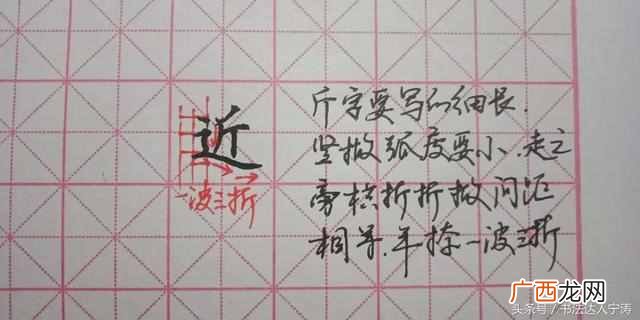 近
一波三折
斤字要写的细长.
竖撇弧度要小.走之
旁横折折撇间距
相等.平捺一波三折
广西龙网
头条号/书法达人宁涛